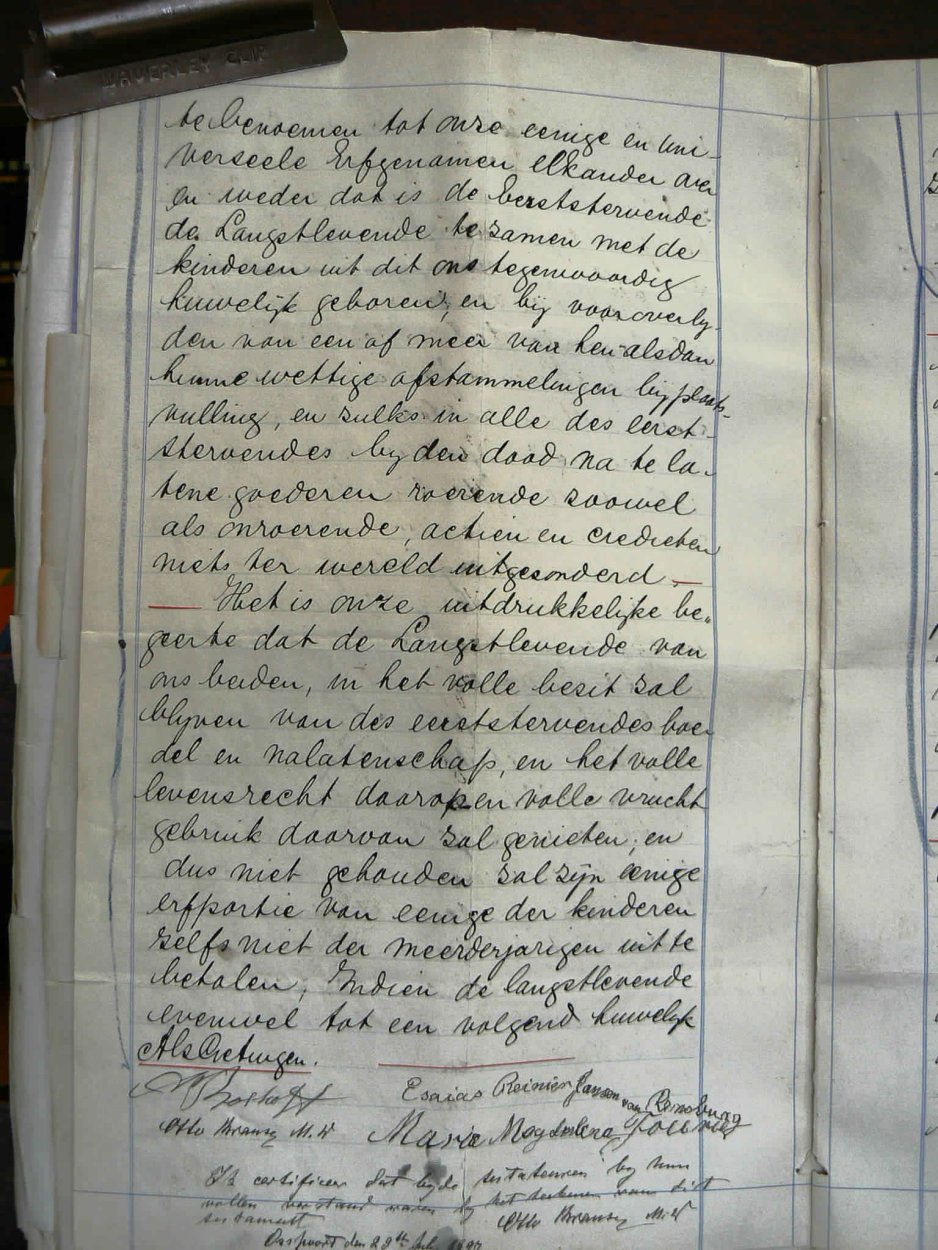 WAVERLEY CLIP
te benoemen tot onze eenige en Uni-
verseele Erfgenamen elkander over
en weder dat is de Eerststervende
de Langstlevende te zamen met de
kinderen uit dit ons tegenwoordig
huwelijk geboren, en bij vooroverly-
den van een of meer van hen alsdan
hunne wettige afstammelingen by plaats-
vulling, en zulks in alle des eerst-
stervendes by den dood na te la-
tene goederen roerende zoowel
als onroerende, actien en credieten
niets ter wereld uitgesonderd.
Het is onze uitdrukkelijke be-
geerte dat de Langstlevende van
ons beiden, in het volle bezit zal
blyven van des eerststervendes boe-
del en nalatenschap, en het volle
levensrecht daarop en volle vrucht
gebruik daarvan zal genieten; en
dus niet gehouden zal zijn eenige
erfportie van eenige der kinderen
zelfs niet der meerderjarigen uit te
betalen; Indien de langstlevende
evenwel tot een volgend huwelijk
Als Getuigen.
Esaias Reinier Jansen van Rensburg
Otto Bransy M.W Maria Magdalena
Ik certificeer dat beyde testateuren by hun
vollen verstand waren by het teekenen van dit
testament Otto Bransy M.W